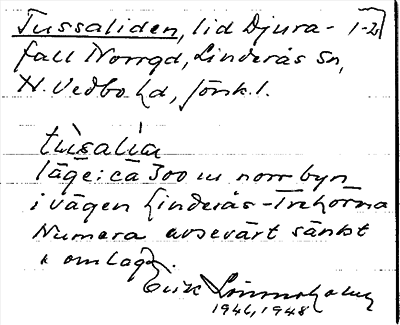 Tussaliden, lid Djura- 1-2
fall Norrgd, Linderås Sn,
N. Vedbo hd, Jönk. l.
tùsalía
läge: ca 300 m norr byn
i vägen Linderås - Trehörna
Numera avsevärt sänkt
o omlagd.
Erik Linnsholm
1946, 1948